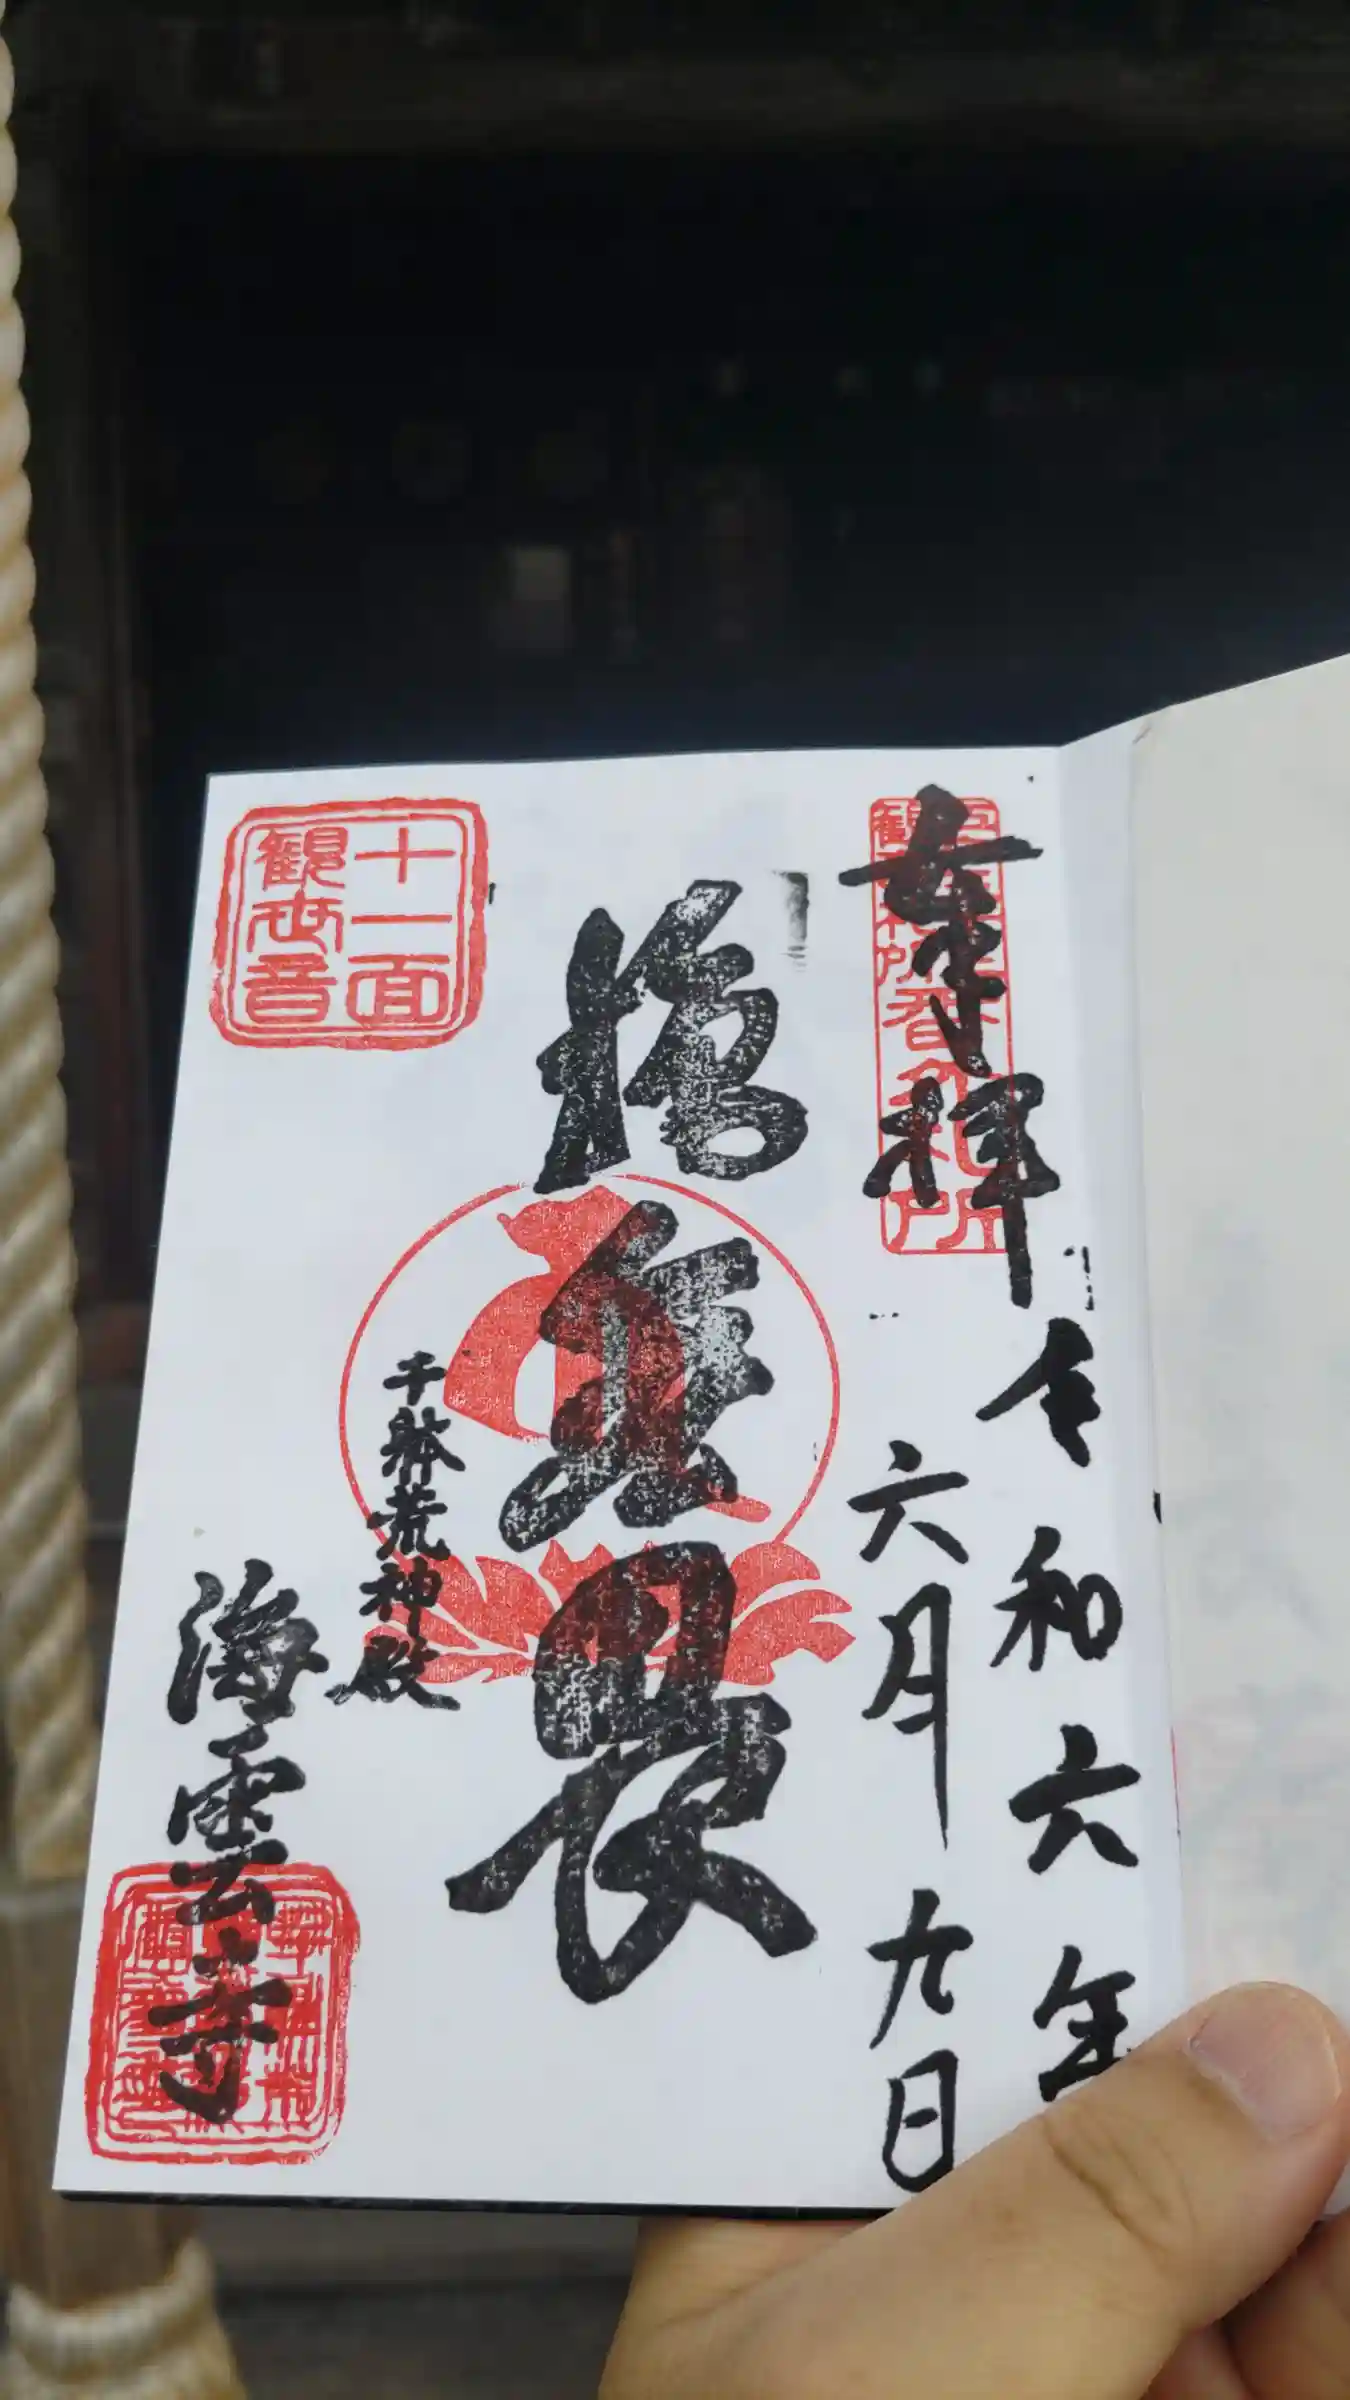 奉拝
令和六年
六月九日
施無畏
千躰荒神殿
海雲寺
十一面
観世音